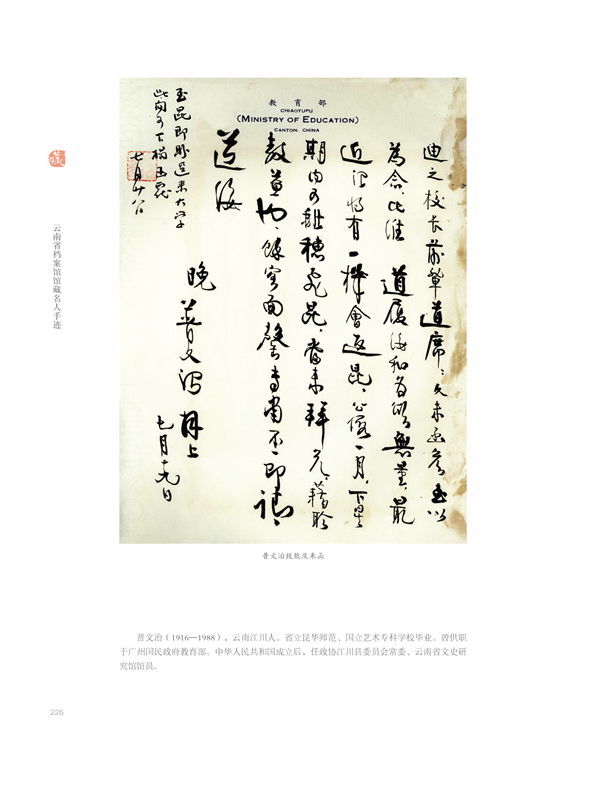 教育部
CHIAOYUPU
(MINISTRY OF EDUCATION)
CANTON, CHINA
迪之校长前辈道席：久未函候，至以
为念比维 道履海和為頌無量，最
近得有一機會返昆，公假一月，下星
期内可赴穗飛昆，當来拜見，藉聆
教益也，餘容面罄，专肃不一即请
道海
晚 普文治 拜上
七月十九日
玉昆即
七月廿八
云南省档案馆馆藏名人手迹
普文治致熊庆来函
普文治（1916—1988），云南江川人。省立昆华师范、国立艺术专科学校毕业。曾供职
于广州国民政府教育部。中华人民共和国成立后，任政协江川县委员会常委、云南省文史研
究馆馆员。
226